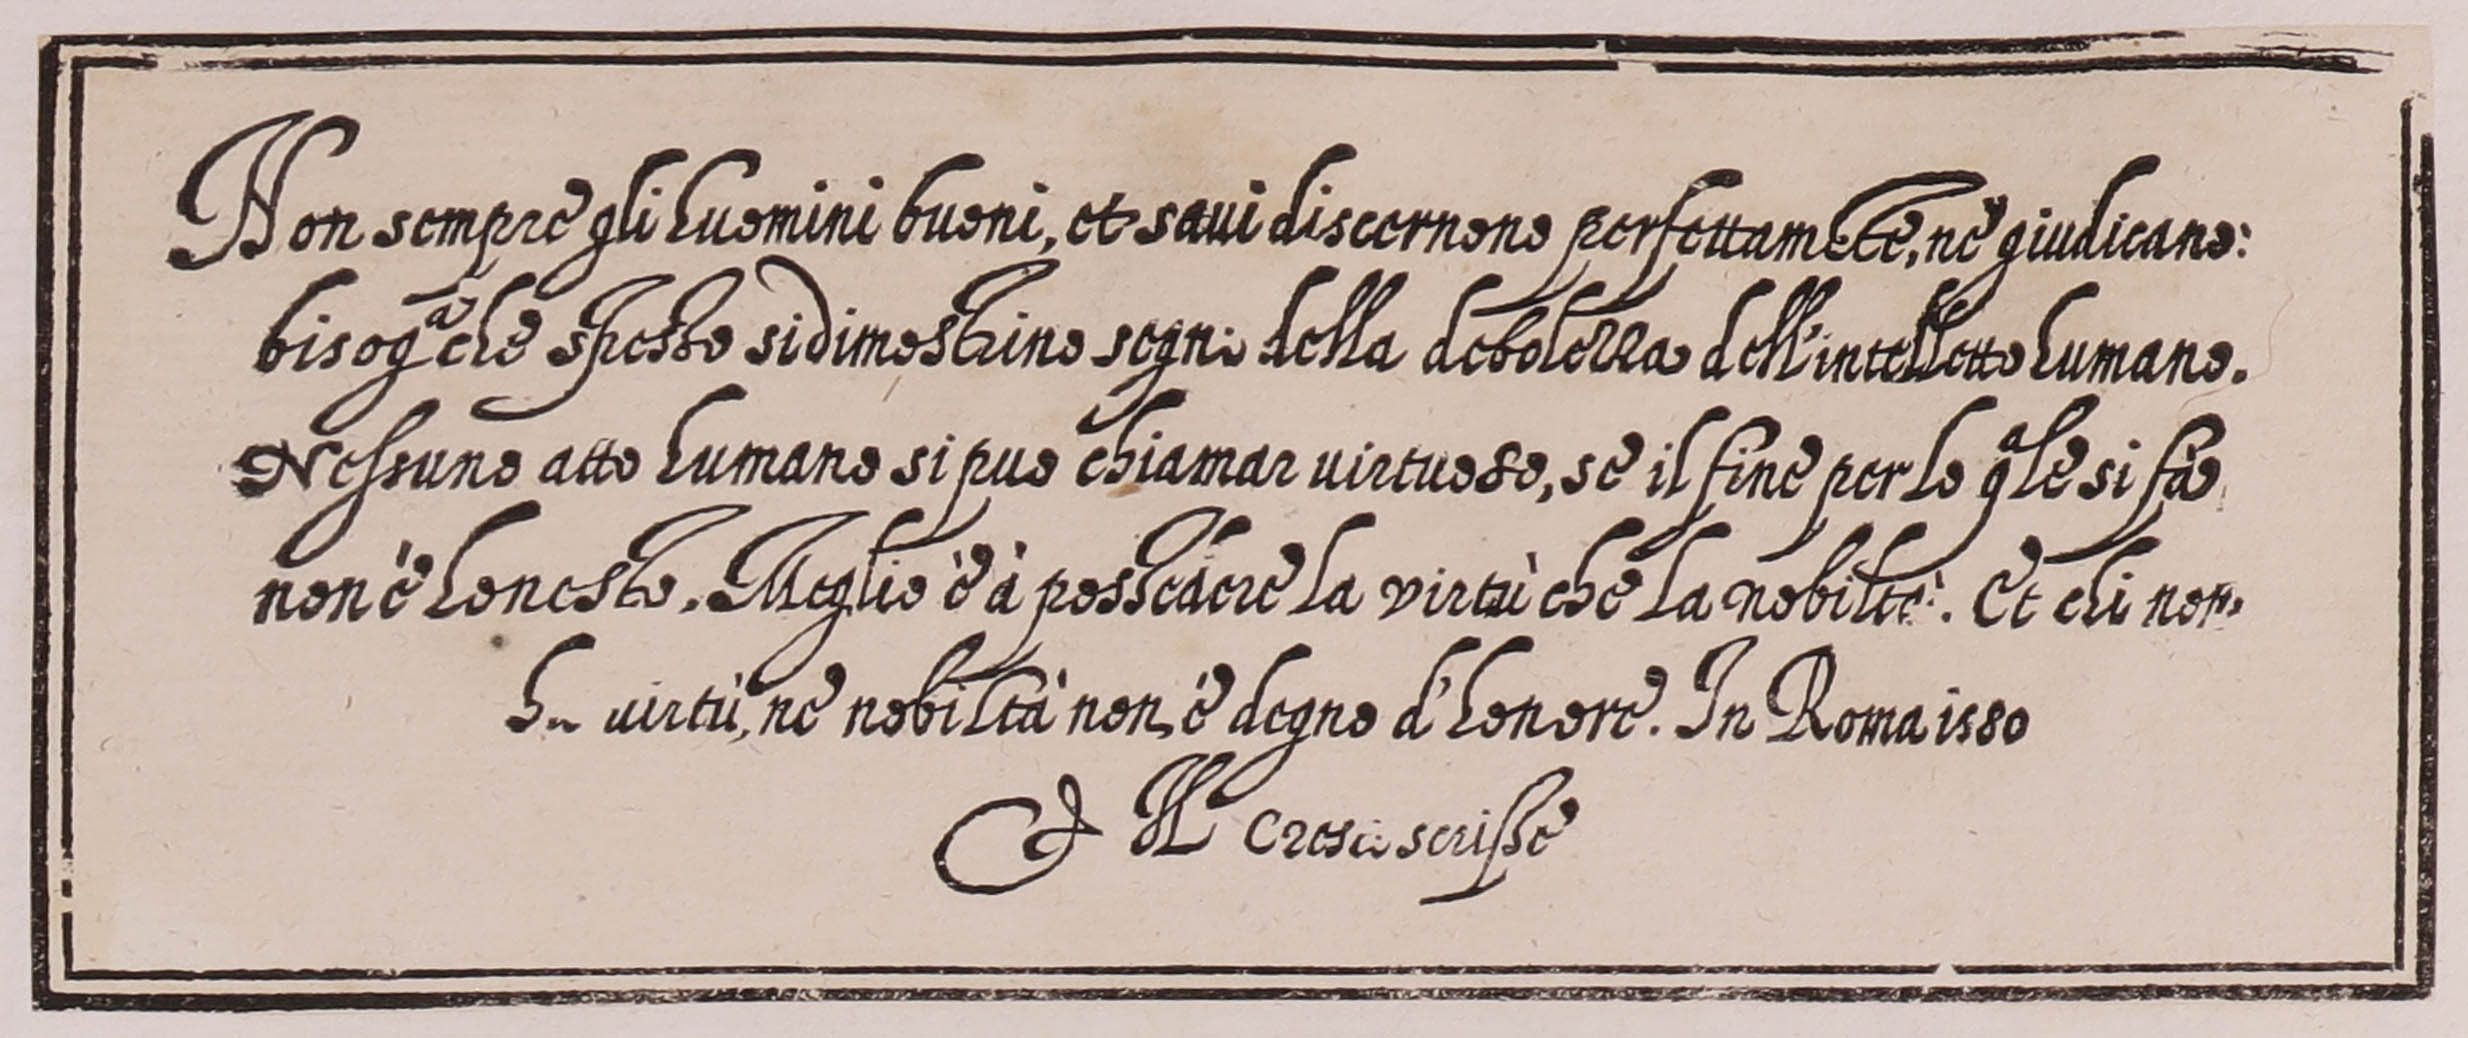 Non sempre gli huomini buoni, et saui discernono perfettamēte, ne giudicano:
bisogᵃ che spesso si dimostrino segni della debolezza dell'intelletto humano.
Nessuno atto humano si puo chiamar uirtuoso, se il fine per lo qᵃle si fà
non è honesto. Meglio è à possedere la virtù che la nobiltà. Et chi non
ha uirtù, ne nobiltà non è degno d'honore. In Roma 1580
Cresci scrisse